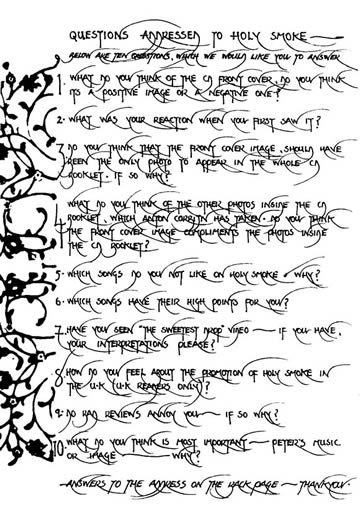 QUESTIONS ADDRESSED TO HOLY SMOKE —
BELOW ARE TEN QUESTIONS, WHICH WE WOULD LIKE YOU TO ANSWER
1. WHAT DO YOU THINK OF THE CD FRONT COVER. DO YOU THINK
IT'S A POSITIVE IMAGE OR A NEGATIVE ONE?
2. WHAT WAS YOUR REACTION WHEN YOU FIRST SAW IT?
3. DO YOU THINK THAT THE FRONT COVER IMAGE, SHOULD HAVE
BEEN THE ONLY PHOTO TO APPEAR IN THE WHOLE CD
BOOKLET. IF SO WHY?
4. WHAT DO YOU THINK OF THE OTHER PHOTOS INSIDE THE CD
BOOKLET, WHICH ANTON CORBIJN HAS TAKEN. DO YOU THINK
THE FRONT COVER IMAGE COMPLIMENTS THE PHOTOS INSIDE
THE CD BOOKLET?
5. WHICH SONGS DO YOU NOT LIKE ON HOLY SMOKE. WHY?
6. WHICH SONGS HAVE THEIR HIGH POINTS FOR YOU?
7. HAVE YOU SEEN "THE SWEETEST DROP" VIDEO — IF YOU HAVE,
YOUR INTERPRETATIONS PLEASE?
8. HOW DO YOU FEEL ABOUT THE PROMOTION OF HOLY SMOKE IN
THE U.K (U.K READERS ONLY)?
9. DO BAD REVIEWS ANNOY YOU — IF SO WHY?
10. WHAT DO YOU THINK IS MOST IMPORTANT — PETER'S MUSIC
OR IMAGE — WHY?
ANSWERS TO THE ADDRESS ON THE BACK PAGE — THANKYOU